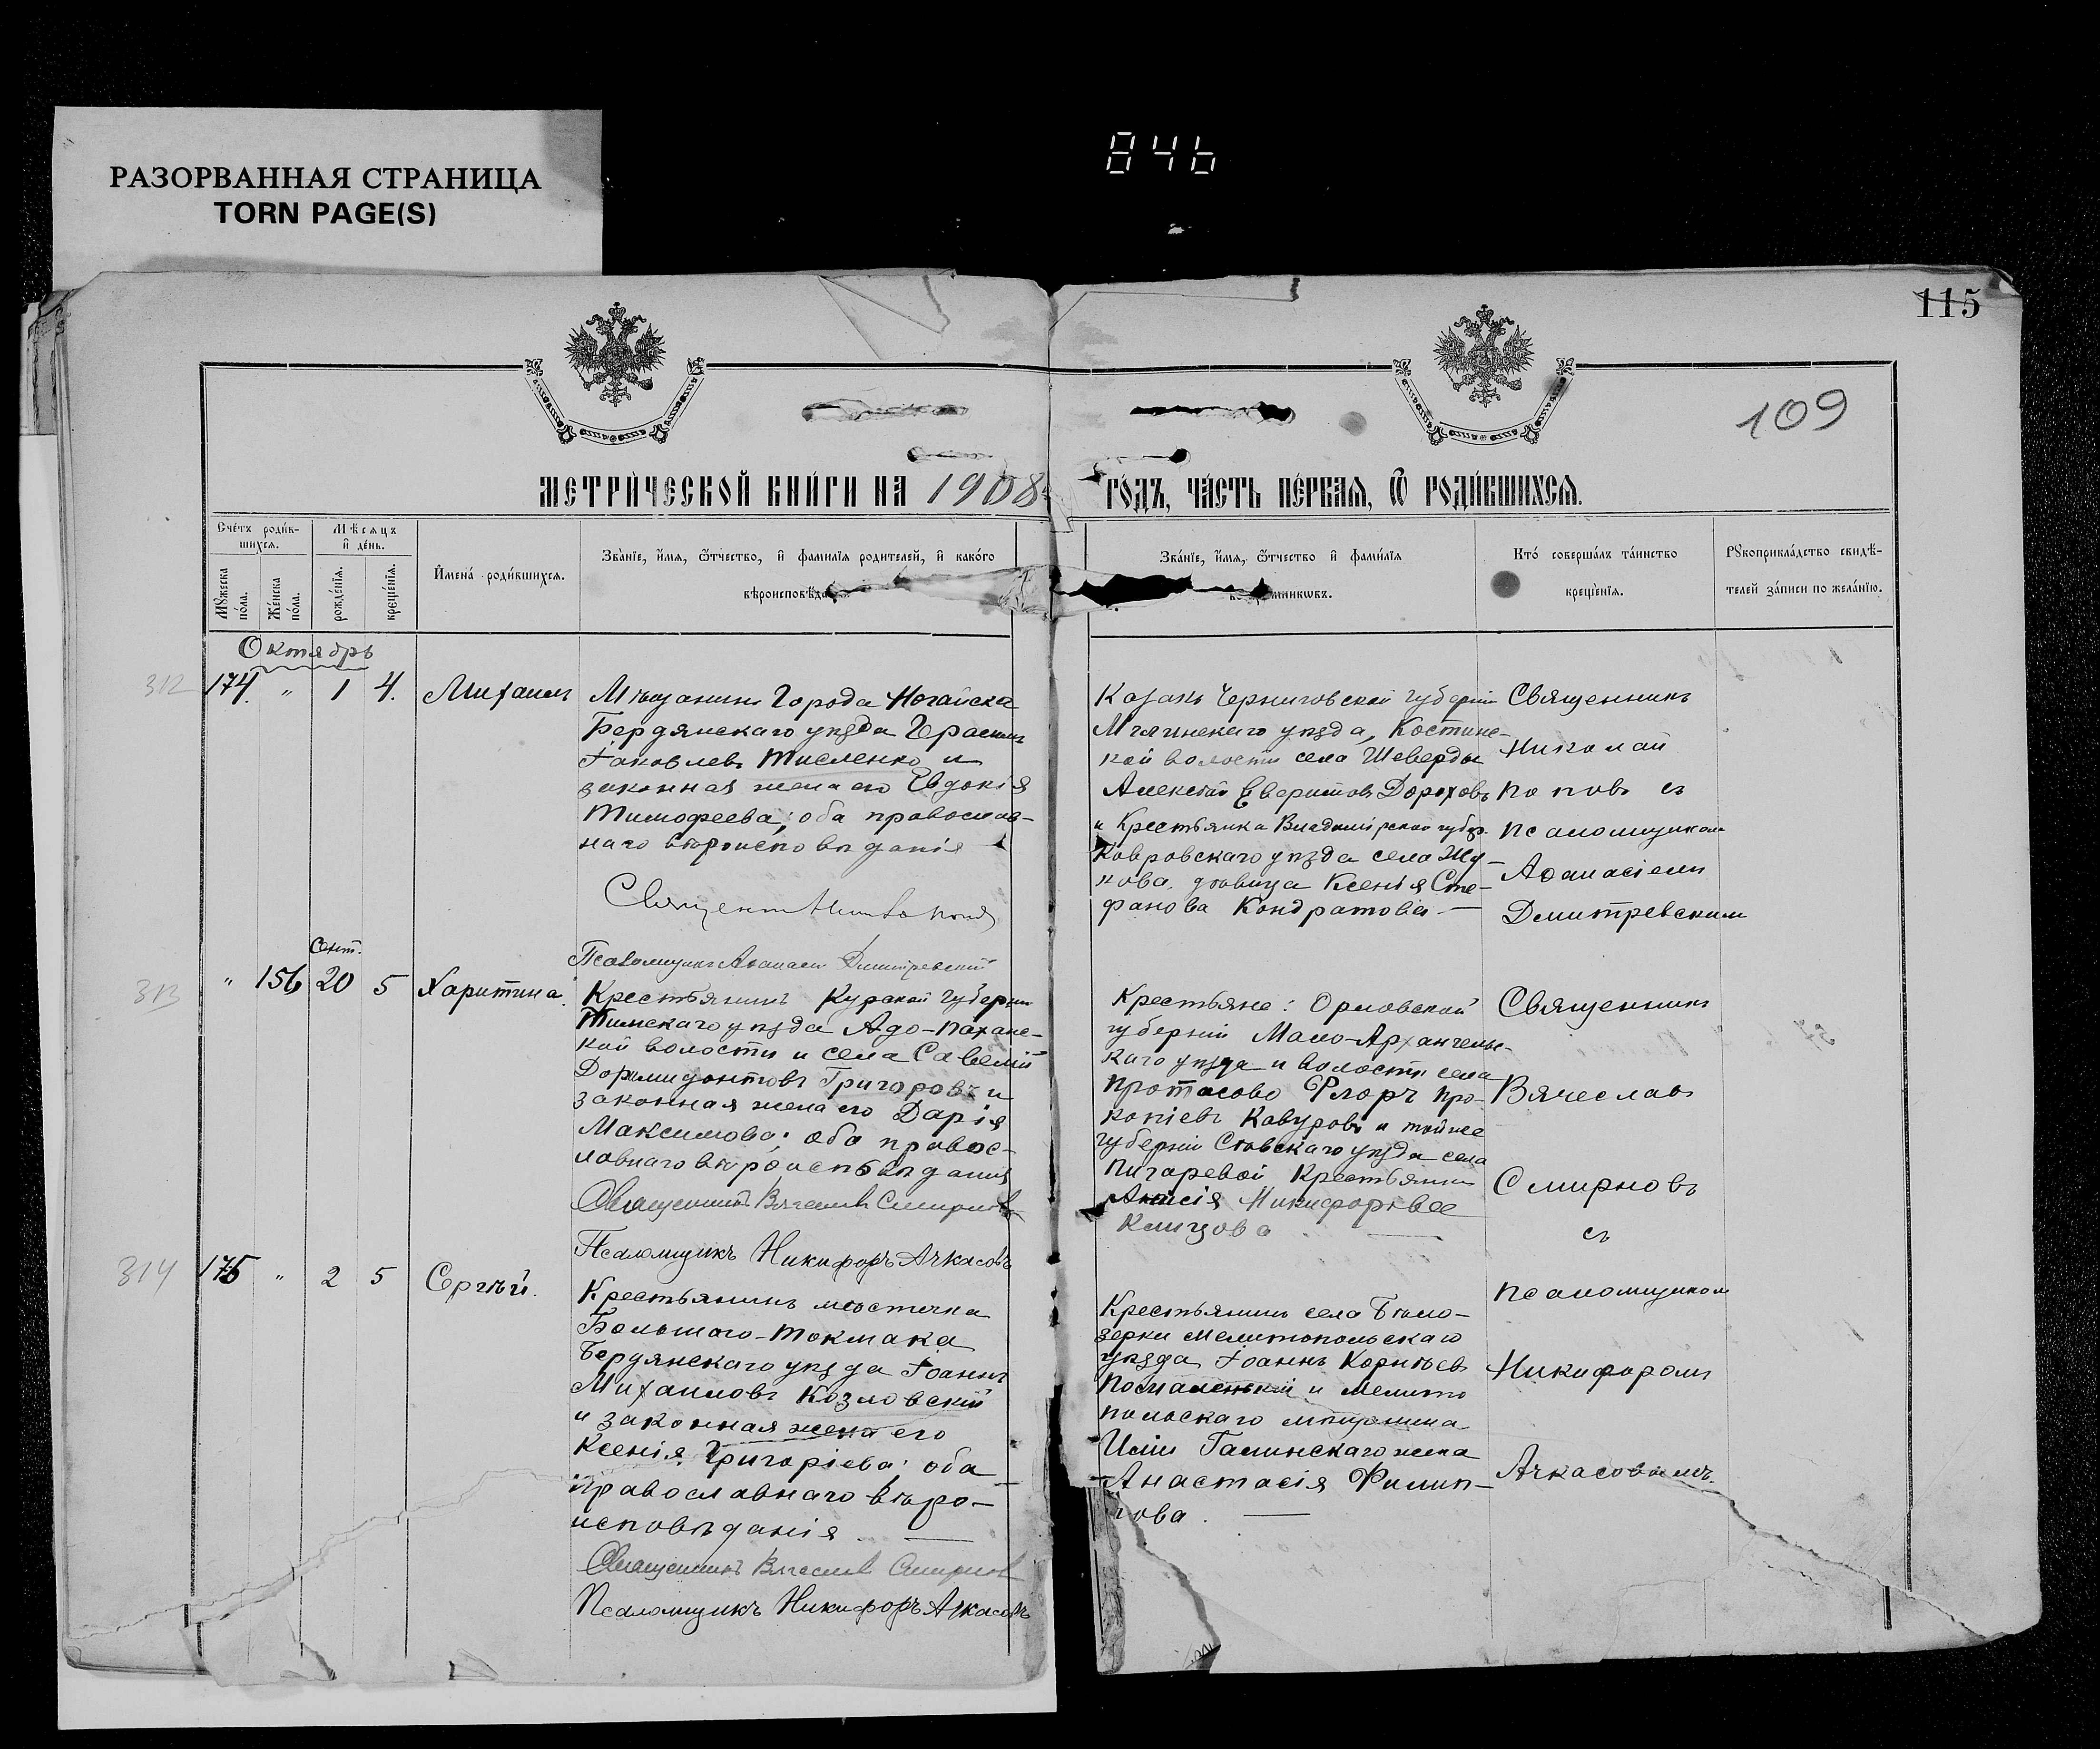 РАЗОРВАННАЯ СТРАНИЦА
TORN PAGE(S)
846
115
109
МЕТРИ́ЧЕСКОЙ КНИ́ГИ НА 1908 ГО́ДЪ, ЧА́СТЬ ПЕ́РВАѦ, Ѿ РОДИ́ВШИХСѦ.
Сче́тъ роди́в-
шихсѧ.
Мѣсѧцъ
и де́нь.
Мꙋжеска по́ла.
Же́нска по́ла.
рожде́нїѧ.
креще́нїѧ.
Имена́ роди́вшихсѧ.
Зва́нїе, и́мѧ, ѻ҆́тчество, и фами́лїѧ родителей, и како́го
вѣроисповѣда
Зва́нїе, и́мѧ, ѻ҆́тчество и фами́лїѧ
мникѡвъ.
Кто́ соверша́лъ та́инство
креще́нїѧ.
Рꙋкоприкла́дство свидѣ́-
телей за́писи по жела́нїю.
Октябрь
312
174. " 1 4. Михаилъ
Мѣщанинъ Города Ногайска
Бердянскаго уѣзда Герасимъ
Іаковлевъ Тисленко и
законная жена его Евдокія
Тимофеева; оба православ-
наго вѣроисповѣданія
Псаломщикъ Аѳанасій Дмитревскій
Казакъ Черниговской губерніи
Мглинскаго уѣзда, Костинс-
кой волости села Шеверды
Алексѣй Еверистовъ Дороховъ
и Крестьянка Владимірской губер.
Ковровскаго уѣзда села Жу-
кова, дѣвица Ксенія Сте-
фанова Кондратова —
Священникъ
Николай
Поповъ съ
псаломщикомъ
Аѳанасіемъ
Дмитревскимъ
Сент.
313
" 156 20 5 Харитина.
Крестьянинъ Курской губерніи
Тимскаго уѣзда
кой волости и села Савелій
Доримидонтовъ Григоровъ и
законная жена его Дарія
Максимова; оба правос-
лавнаго вѣроисповѣданія
Священникъ Вячеславъ Смирновъ
Псаломщикъ Никифоръ Ачкасовъ
Крестьяне: Орловской
губерніи Мало-Архангельс-
каго уѣзда и волости села
Протасово Флоръ Про-
копіевъ Кавуровъ и той же
губерніи Сѣвскаго уѣзда села
Пигаревой Крестьянка
Анисія Никифорова
Климова
Священникъ
Вячеславъ
Смирновъ
съ
псаломщикомъ
Никифоромъ
Ачкасовымъ.
314
175 " 2 5 Сергѣй.
Крестьянинъ мѣстечка
Большаго-Токмака
Бердянскаго уѣзда Іоаннъ
Михаиловъ Козловскій
и законная жена его
Ксенія Григоріева; оба
православнаго вѣро-
исповѣданія —
Священникъ Вячеславъ Смирновъ
Псаломщикъ Никифоръ Ачкасовъ
Крестьянинъ села Бѣло-
зерки Мелитопольскаго
уѣзда Іоаннъ Корнѣевъ
и Мелито
польскаго мѣщанина
Иліи Галинскаго жена
Анастасія Филип-
пова. —